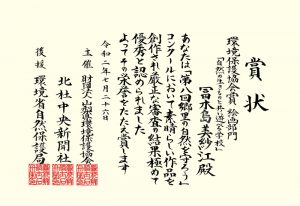 賞状
環境保護協会会賞 絵画部門
「自然の生きものと共に遊べる学校」
冨木島美紗江殿
あなたは「第八回郷里の自然を守ろう」
コンクールにおいて素晴らしい作品を
創作され厳正な審査の結果極めて
優秀と認められました
よってその栄誉をたたえ賞します
令和二年七月二十六日
主催 財団法人山梨県環境保護協会
北杜中央新聞社
後援 環境省自然保護局